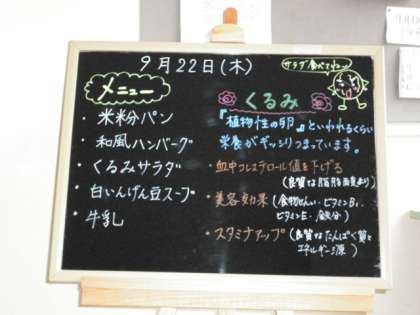 9月22日(木)
メニュー
・米粉パン
・和風ハンバーグ
・くるみサラダ
・白いんげん豆スープ
・牛乳
サラダ食べてねっ
くるみ
『植物性の卵』といわれるくらい
栄養がギッシリつまっています。
・血中コレステロール値を下げる
(良質な脂肪酸より)
・美容効果(食物せんい・ビタミンB1、
ビタミンE・鉄分)
・スタミナアップ(良質なたんぱく質と
エネルギー源)